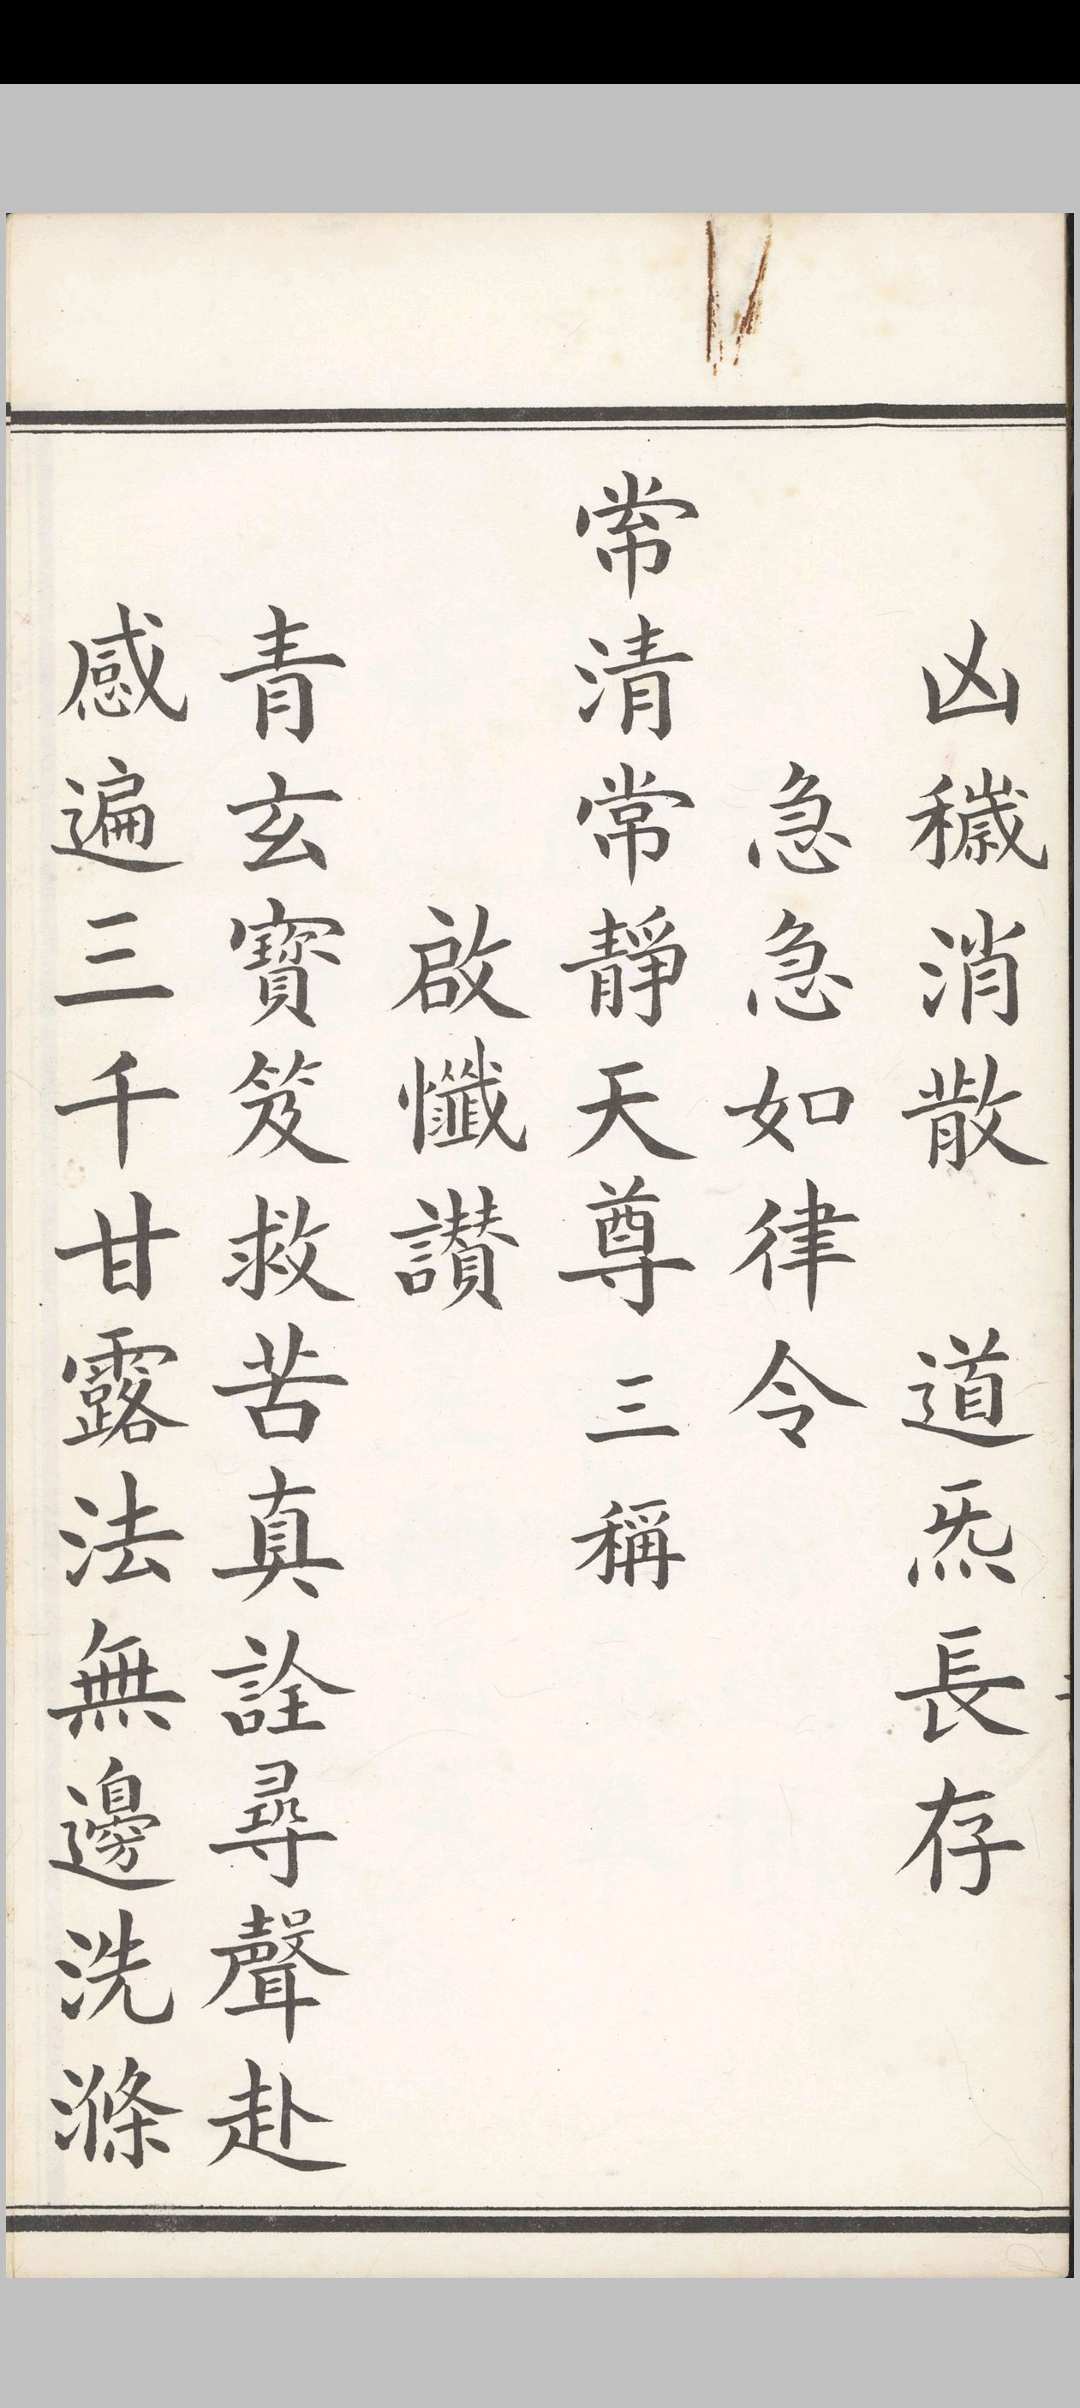 凶穢消散　道炁長存
急急如律令
常清常靜天尊三稱
啟懺讚
青玄寶笈救苦真詮尋聲赴
感遍三千甘露法無邊洗滌